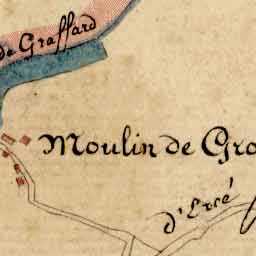 de Graffard
Moulin de Gra
d'Ercé